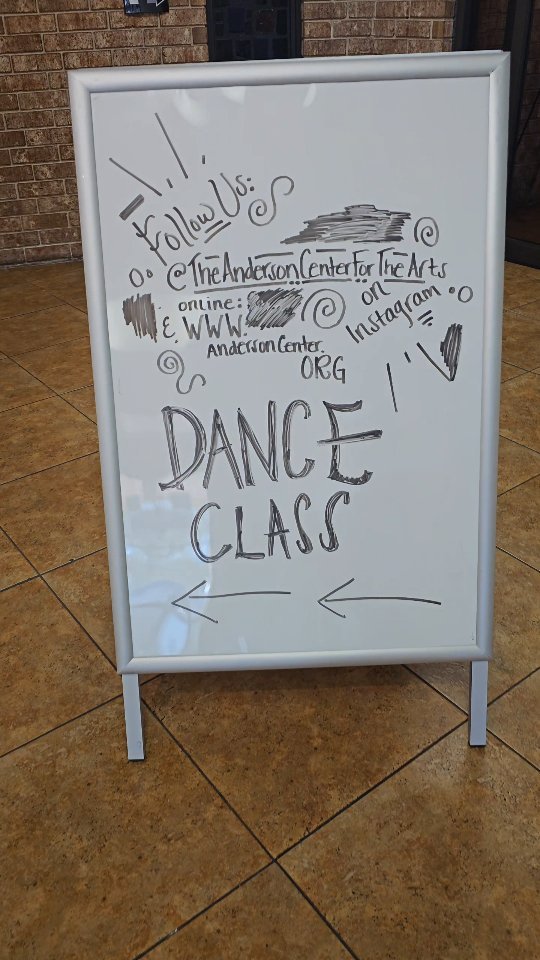 Follow Us:
@TheAndersonCenterForTheArts
on
Instagram
online:
& WWW.
AndersonCenter.
ORG
DANCE
CLASS